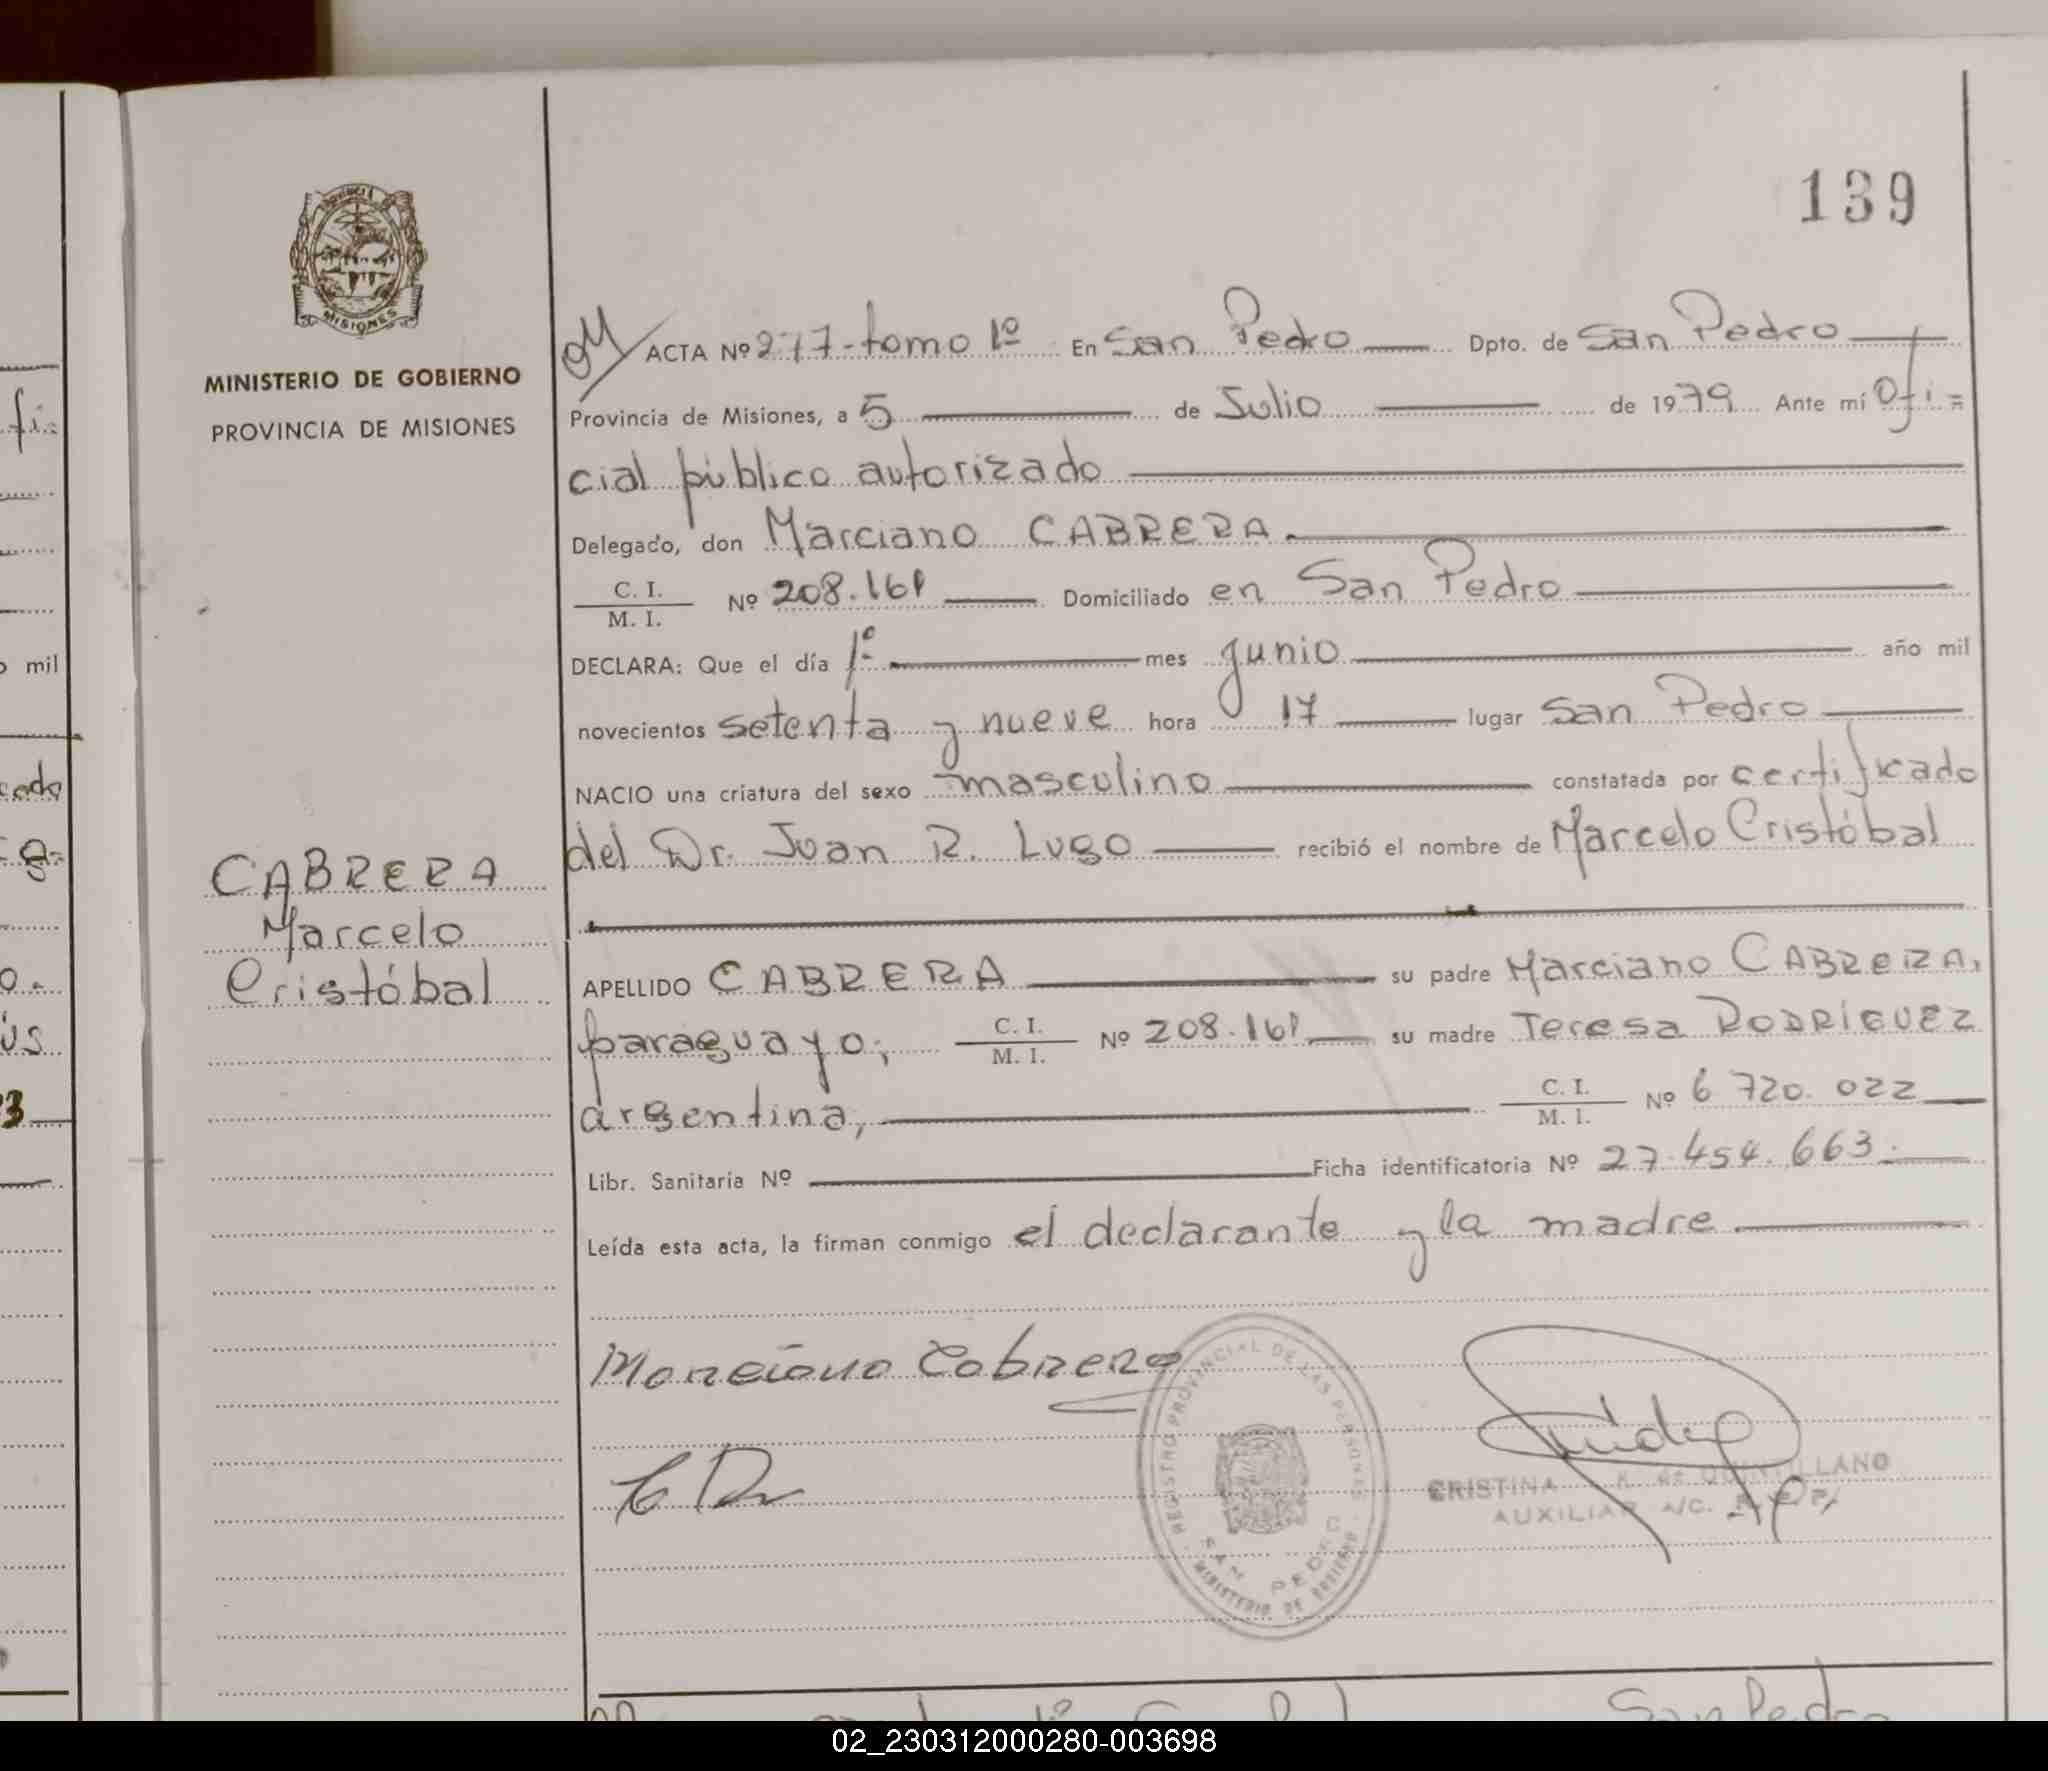 139
MINISTERIO DE GOBIERNO
PROVINCIA DE MISIONES
MISIONES
ACTA Nº 277-tomo 1º En San Pedro Dpto. de San Pedro
Provincia de Misiones, a 5 de Julio de 1979 Ante mí Ofi=
cial público autorizado
Delegado, don Marciano CABRERA
C. I.
M. I. Nº 208.161 Domiciliado en San Pedro
DECLARA: Que el día 1º mes junio año mil
novecientos setenta y nueve hora 17 lugar San Pedro
NACIO una criatura del sexo masculino constatada por certificado
del Dr. Juan R. Lugo recibió el nombre de Marcelo Cristóbal
CABRERA
Marcelo
Cristóbal
APELLIDO CABRERA su padre Marciano CABRERA,
paraguayo, C. I. M. I. Nº 208.161 su madre Teresa RODRÍGUEZ
argentina, C. I. M. I. Nº 6 720.022
Libr. Sanitaria Nº Ficha identificatoria Nº 27.454.663.
Leída esta acta, la firman conmigo el declarante y la madre
Marciano Cabrera
REGISTRO PROVINCIAL DE LAS PERSONAS
SAN PEDRO
MINISTERIO DE GOBIERNO
CRISTINA K. de QUINTILLANO
AUXILIAR A/C.
San Pedro
02_230312000280-003698